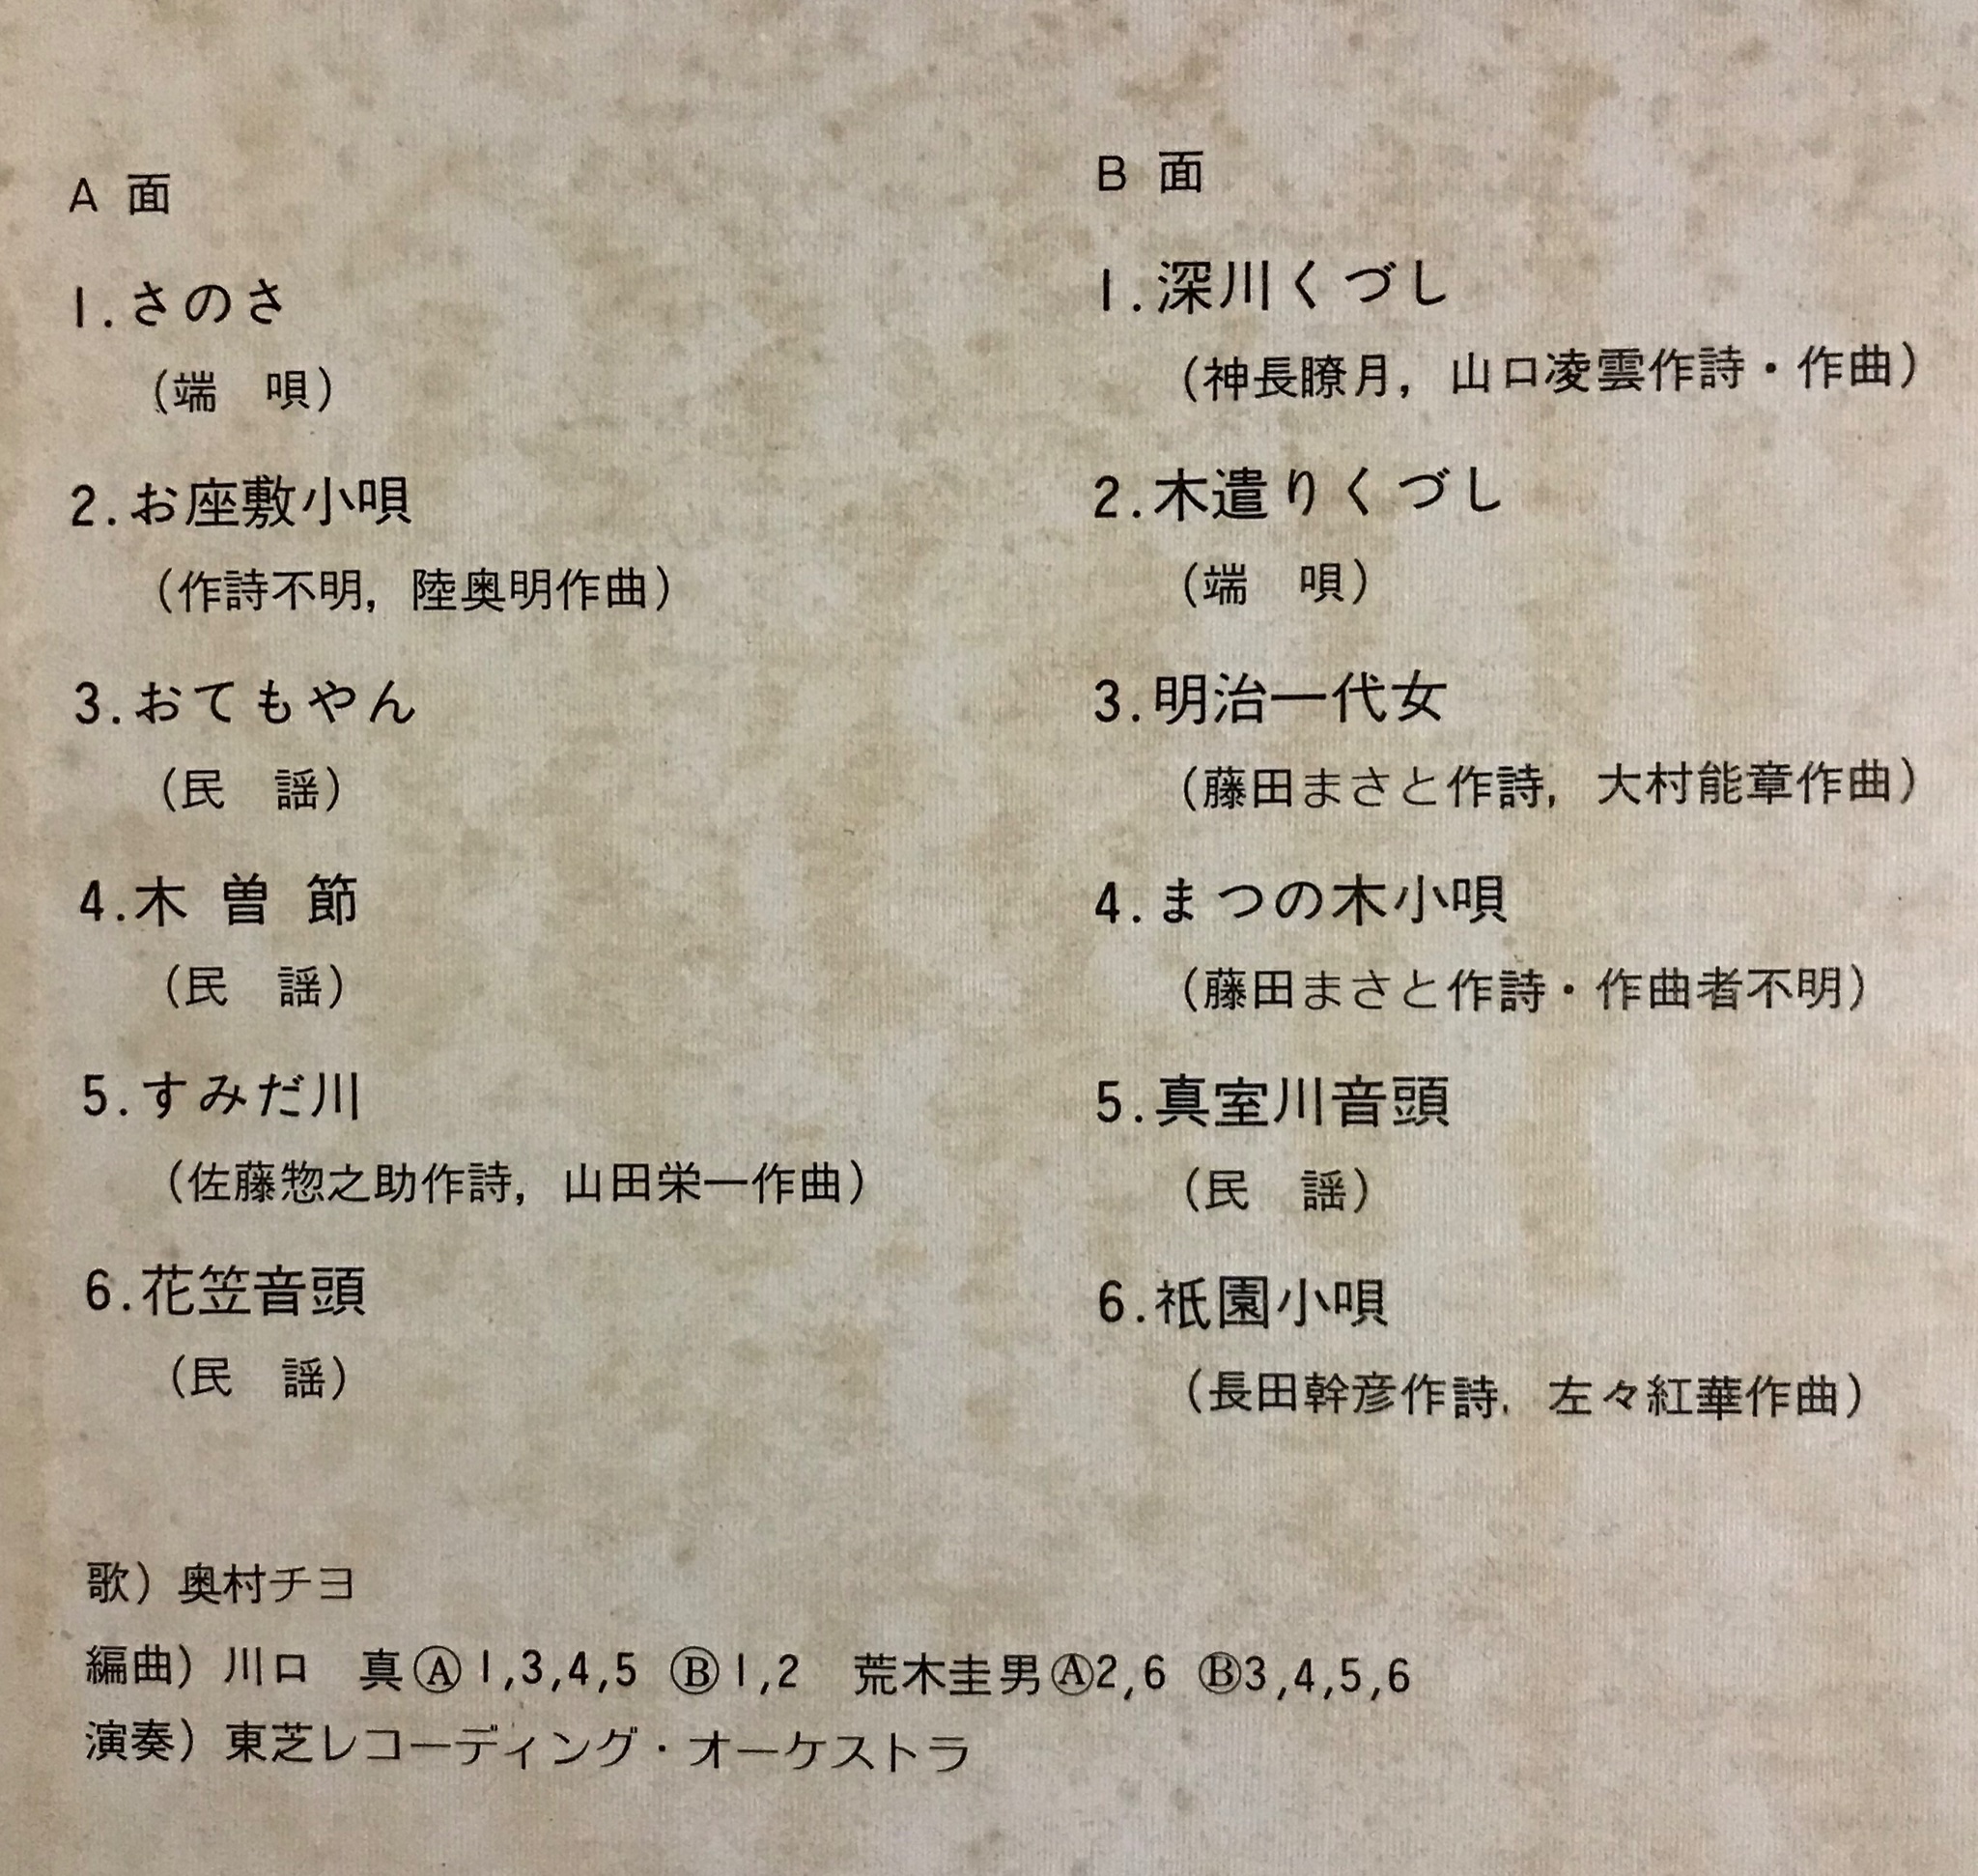 A 面
1.さのさ
(端 唄)
2.お座敷小唄
(作詩不明, 陸奥明作曲)
3.おてもやん
(民 謡)
4.木 曽 節
(民 謡)
5.すみだ川
(佐藤惣之助作詩, 山田栄一作曲)
6.花笠音頭
(民 謡)
B 面
1.深川くづし
(神長瞭月, 山口凌雲作詩・作曲)
2.木遣りくづし
(端 唄)
3.明治一代女
(藤田まさと作詩, 大村能章作曲)
4.まつの木小唄
(藤田まさと作詩・作曲者不明)
5.真室川音頭
(民 謡)
6.祇園小唄
(長田幹彦作詩, 左々紅華作曲)
歌) 奥村チヨ
編曲) 川口 真Ⓐ1,3,4,5 Ⓑ1,2 荒木圭男Ⓐ2,6 Ⓑ3,4,5,6
演奏) 東芝レコーディング・オーケストラ